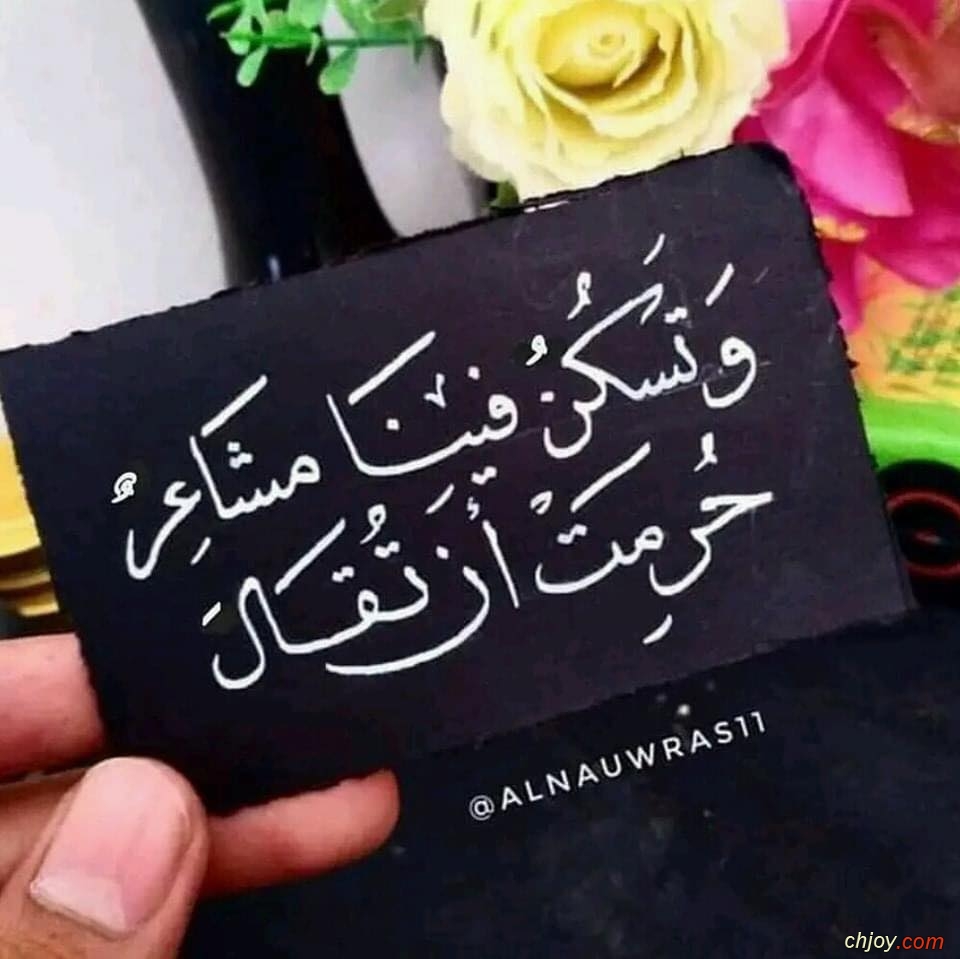 وَتَسكُنُ فينَا مشَاعِرٌ
حُرِمَتْ أَن تُقَالَ
@ALNAUWRAS11
chjoy.com